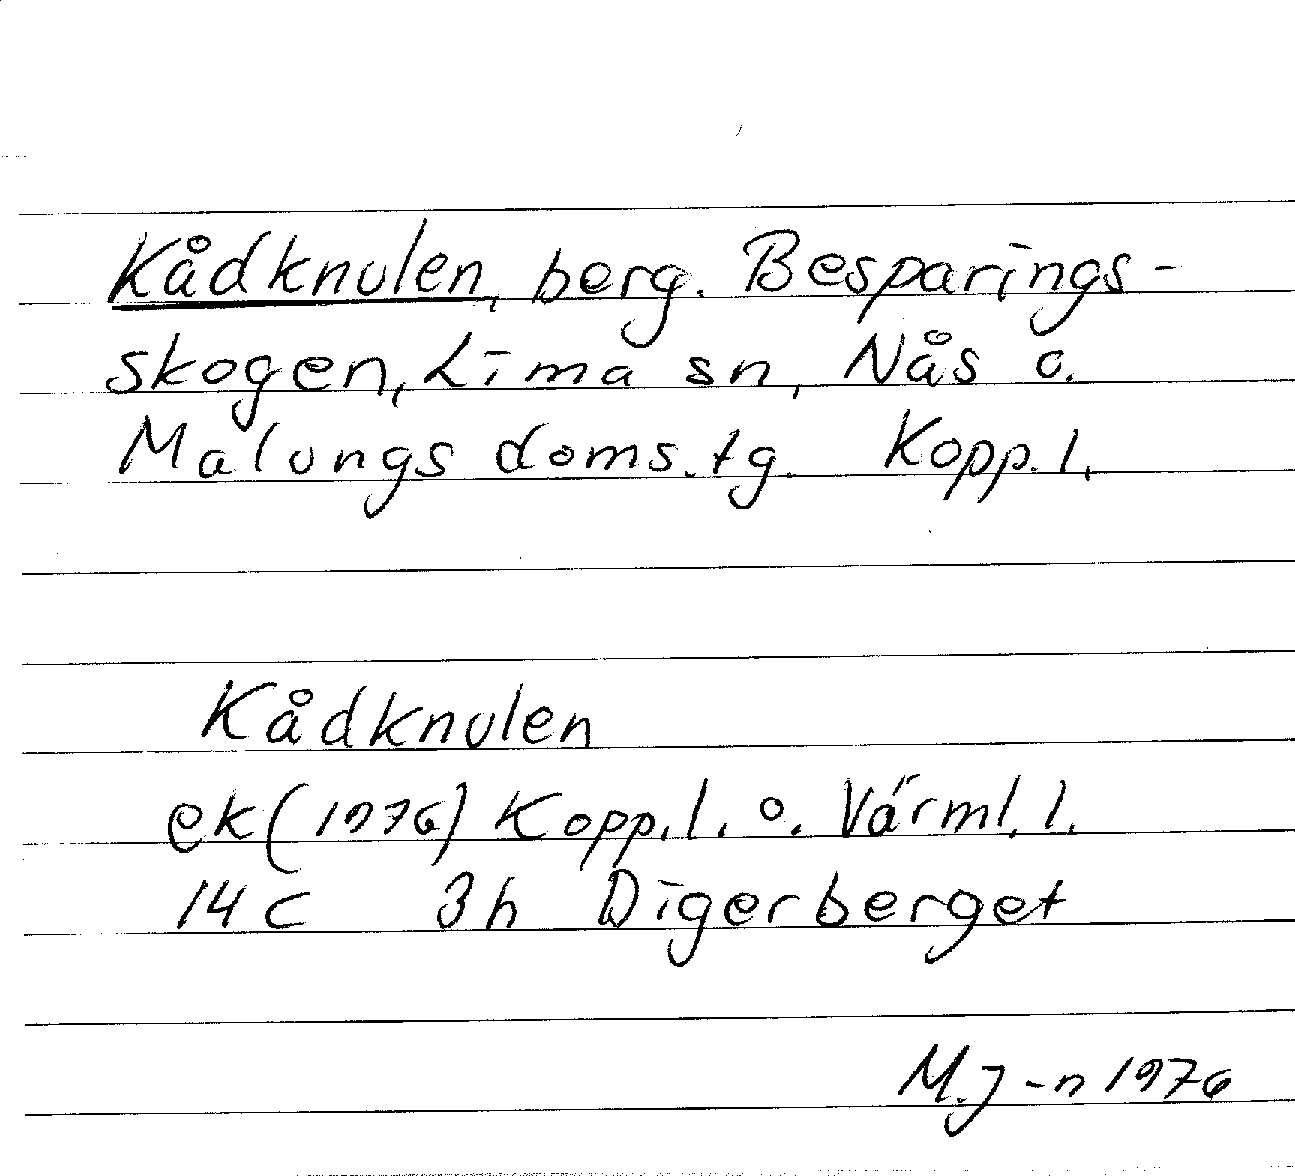 Kådknulen, berg. Besparings-
skogen, Lima sn, Nås o.
Malungs doms.tg. Kopp.l.
Kådknulen
ek (1976) Kopp.l. o. Värml.l.
14 C 3h Digerberget
M.J-n 1976